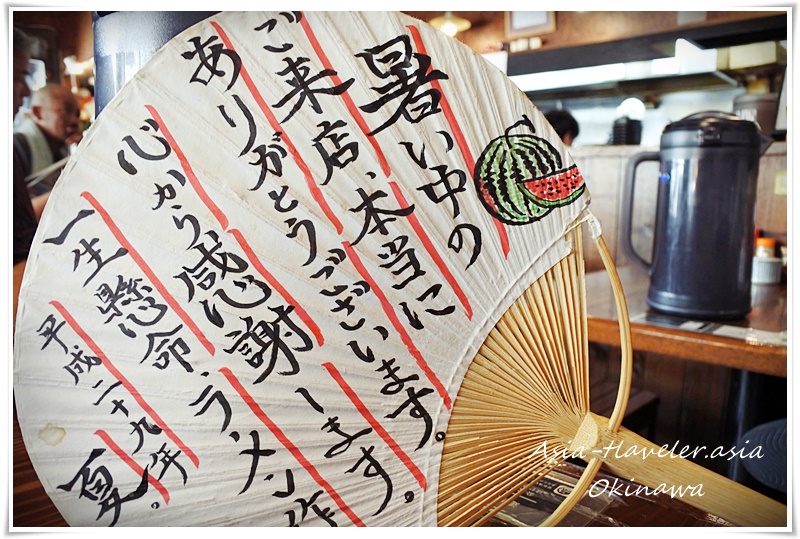 暑い中の
ご来店、本当に
ありがとうございます。
心から感謝します。
一生懸命、ラーメン作
平成二十九年
夏。
Asia-Traveler.asia
Okinawa